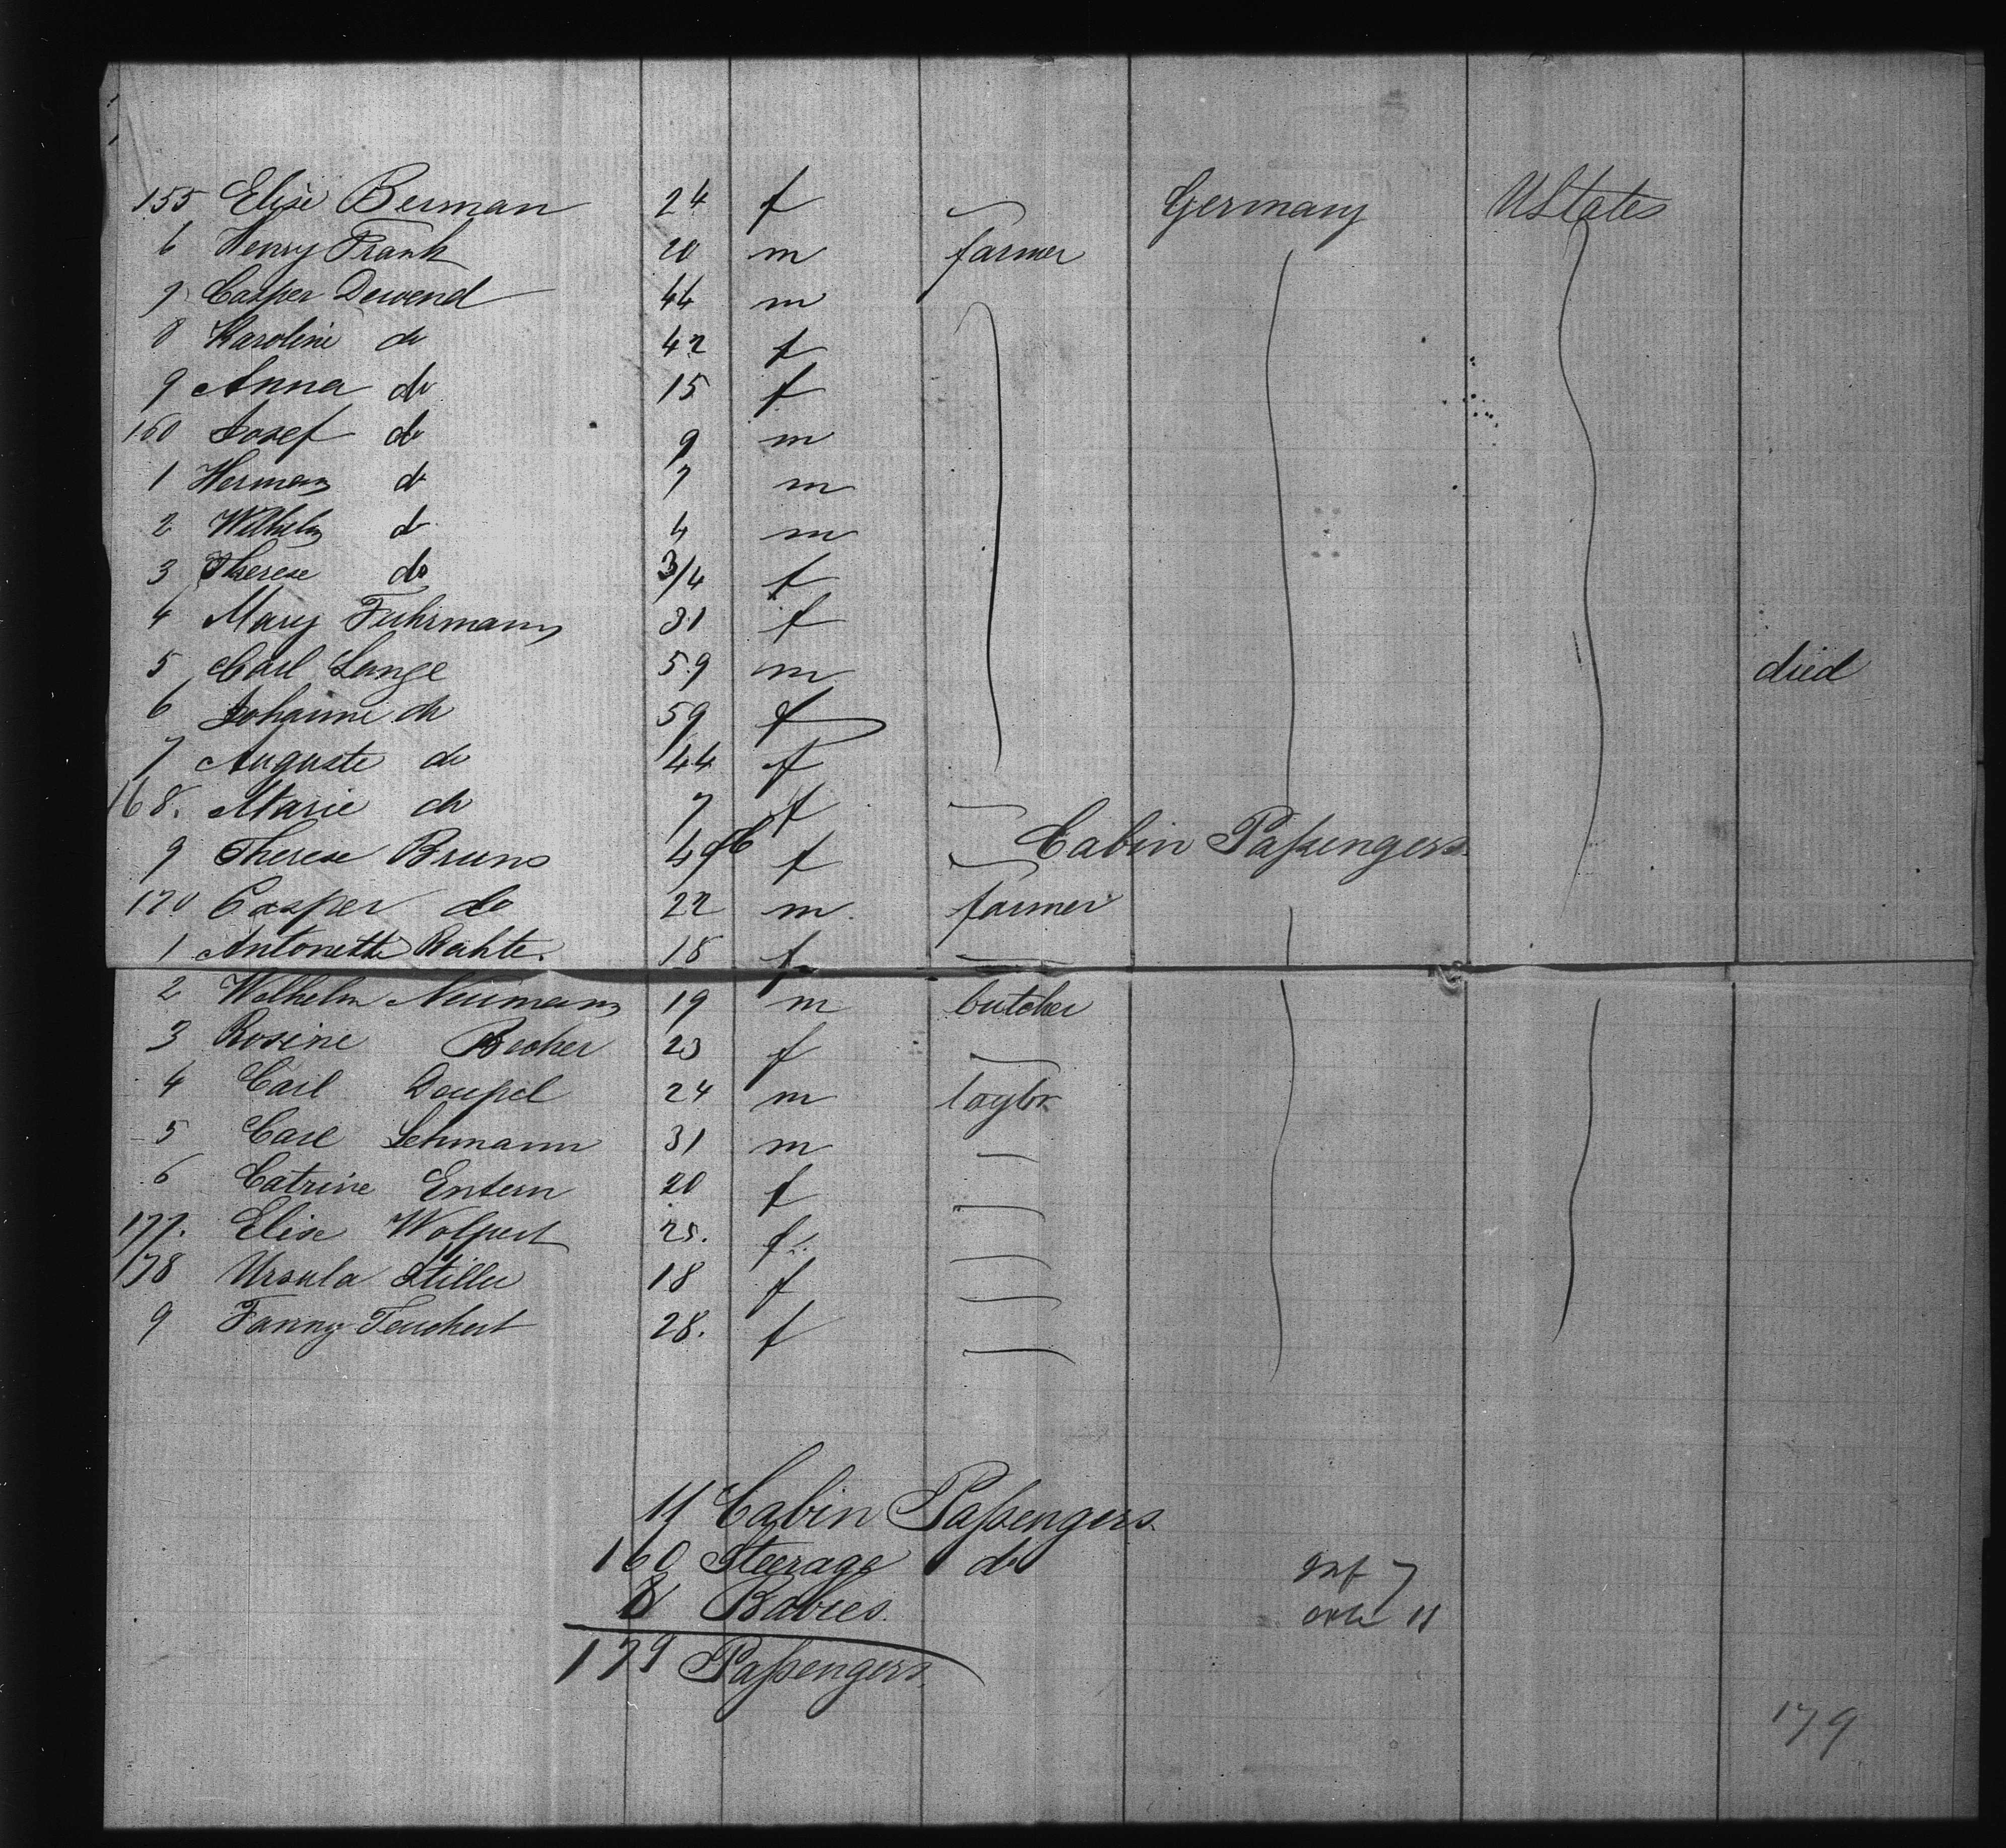 155 Elise Berman 24 f Germany UStates
6 Henry Frank 20 m farmer
7 Casper Dewend 44 m
8 Karoline do 42 f
9 Anna do 15 f
160 Josef do 9 m
1 Herman do 7 m
2 Wilhelm do 4 m
3 Therese do 3/4 f
4 Mary Fuhrmann 31 f
5 Carl Lange 59 m died
6 Johanne do 59 f
7 Auguste do 44 f
168. Marie do 7 f
9 Therese Bruns f Cabin Passengers
170 Casper do 22 m. farmer
1 Antonette Rahte. 18 f
2 Wilhelm Neumann 19 m butcher
3 Rosine Becher 23 f
4 Carl 24 m taylor
5 Carl Lehmann 31 m
6 Catrine Entern 20 f
177. Elise Wolpert 25. f
178 Ursula Stiller 18 f
9 Fanny Teuchert 28. f
11 Cabin Passengers
160 Steerage do
8 Babies
179 Passengers
inf 7
11
179